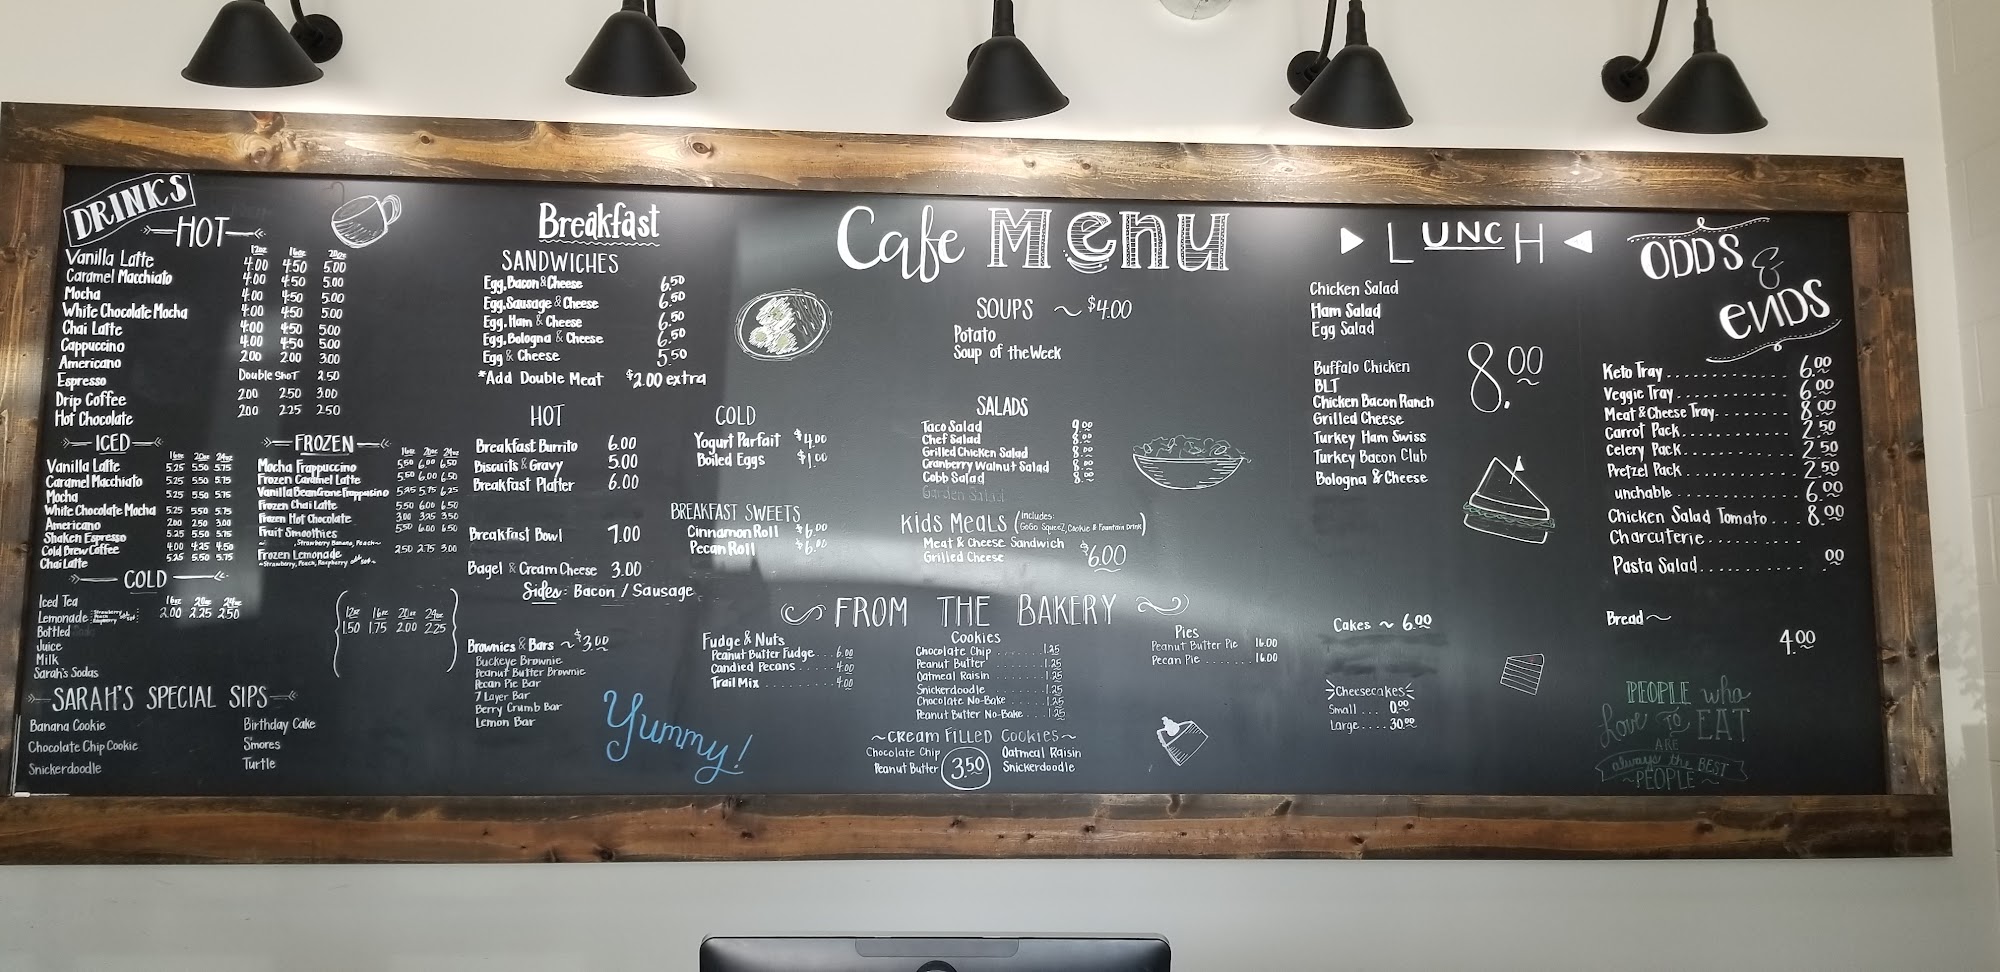 DRINKS
HOT
12oz 16oz 20oz
Vanilla Latte 4.00 4.50 5.00
Caramel Macchiato 4.00 4.50 5.00
Mocha 4.00 4.50 5.00
White Chocolate Mocha 4.00 4.50 5.00
Chai Latte 4.00 4.50 5.00
Cappuccino 4.00 4.50 5.00
Americano 2.00 2.00 3.00
Espresso Double Shot 2.50
Drip Coffee 2.00 2.50 3.00
Hot Chocolate 2.00 2.25 2.50
ICED
16oz 20oz 24oz
Vanilla Latte 5.25 5.50 5.75
Caramel Macchiato 5.25 5.50 5.75
Mocha 5.25 5.50 5.75
White Chocolate Mocha 5.25 5.50 5.75
Americano 2.00 2.50 3.00
Shaken Espresso 5.25 5.50 5.75
Cold Brew Coffee 4.00 4.25 4.50
Chai Latte 5.25 5.50 5.75
FROZEN
16oz 20oz 24oz
Mocha Frappuccino 5.50 6.00 6.50
Frozen Caramel Latte 5.50 6.00 6.50
Vanilla Bean Creme Frappuccino 5.25 5.75 6.25
Frozen Chai Latte 5.50 6.00 6.50
Frozen Hot Chocolate 3.00 3.25 3.50
Fruit Smoothies 5.50 6.00 6.50
Strawberry Banana, Peach~
Frozen Lemonade 2.50 2.75 3.00
~Strawberry, Peach, Raspberry
COLD
16oz 20oz 24oz
Iced Tea
Lemonade 2.00 2.25 2.50
Bottled
Juice
Milk
Sarah's Sodas
12oz 16oz 20oz 24oz
1.50 1.75 2.00 2.25
SARAH'S SPECIAL SIPS
Banana Cookie Birthday Cake
Chocolate Chip Cookie S'mores
Snickerdoodle Turtle
Breakfast
SANDWICHES
Egg, Bacon & Cheese 6.50
Egg, Sausage & Cheese 6.50
Egg, Ham & Cheese 6.50
Egg, Bologna & Cheese 6.50
Egg & Cheese 5.50
*Add Double Meat $2.00 extra
HOT
Breakfast Burrito 6.00
Biscuits & Gravy 5.00
Breakfast Platter 6.00
Breakfast Bowl 7.00
Bagel & Cream Cheese 3.00
Sides: Bacon / Sausage
COLD
Yogurt Parfait $4.00
Boiled Eggs $1.00
BREAKFAST SWEETS
Cinnamon Roll $6.00
Pecan Roll $6.00
Cafe Menu
SOUPS ~ $4.00
Potato
Soup of the Week
SALADS
Taco Salad 9.00
Chef Salad 8.00
Grilled Chicken Salad 8.00
Cranberry Walnut Salad 8.00
Cobb Salad 8.00
Garden Salad
Kids Meals (includes: GoGo Squeez, Cookie & Fountain Drink)
Meat & Cheese Sandwich
Grilled Cheese
$6.00
FROM THE BAKERY
Brownies & Bars ~ $3.00
Buckeye Brownie
Peanut Butter Brownie
Pecan Pie Bar
7 Layer Bar
Berry Crumb Bar
Lemon Bar
Yummy!
Fudge & Nuts
Peanut Butter Fudge... 6.00
Candied Pecans........ 4.00
Trail Mix........ 4.00
Cookies
Chocolate Chip....... 1.25
Peanut Butter....... 1.25
Oatmeal Raisin....... 1.25
Snickerdoodle....... 1.25
Chocolate No-Bake..... 1.25
Peanut Butter No-Bake... 1.25
~CREAM FILLED COOKIES~
Chocolate Chip Oatmeal Raisin
Peanut Butter Snickerdoodle
3.50
Pies
Peanut Butter Pie 16.00
Pecan Pie....... 16.00
LUNCH
Chicken Salad
Ham Salad
Egg Salad
Buffalo Chicken
BLT
Chicken Bacon Ranch
Grilled Cheese
Turkey Ham Swiss
Turkey Bacon Club
Bologna & Cheese
8.00
Cakes ~ 6.00
Cheesecakes
Small.... 0.00
Large.... 30.00
ODDS & ENDS
Keto Tray............. 6.00
Veggie Tray............ 6.00
Meat & Cheese Tray....... 8.00
Carrot Pack............ 2.50
Celery Pack............ 2.50
Pretzel Pack............ 2.50
unchable............ 6.00
Chicken Salad Tomato... 8.00
Charcuterie..........
Pasta Salad.......... .00
Bread~
4.00
PEOPLE who
love TO EAT
ARE
always the BEST
~PEOPLE~